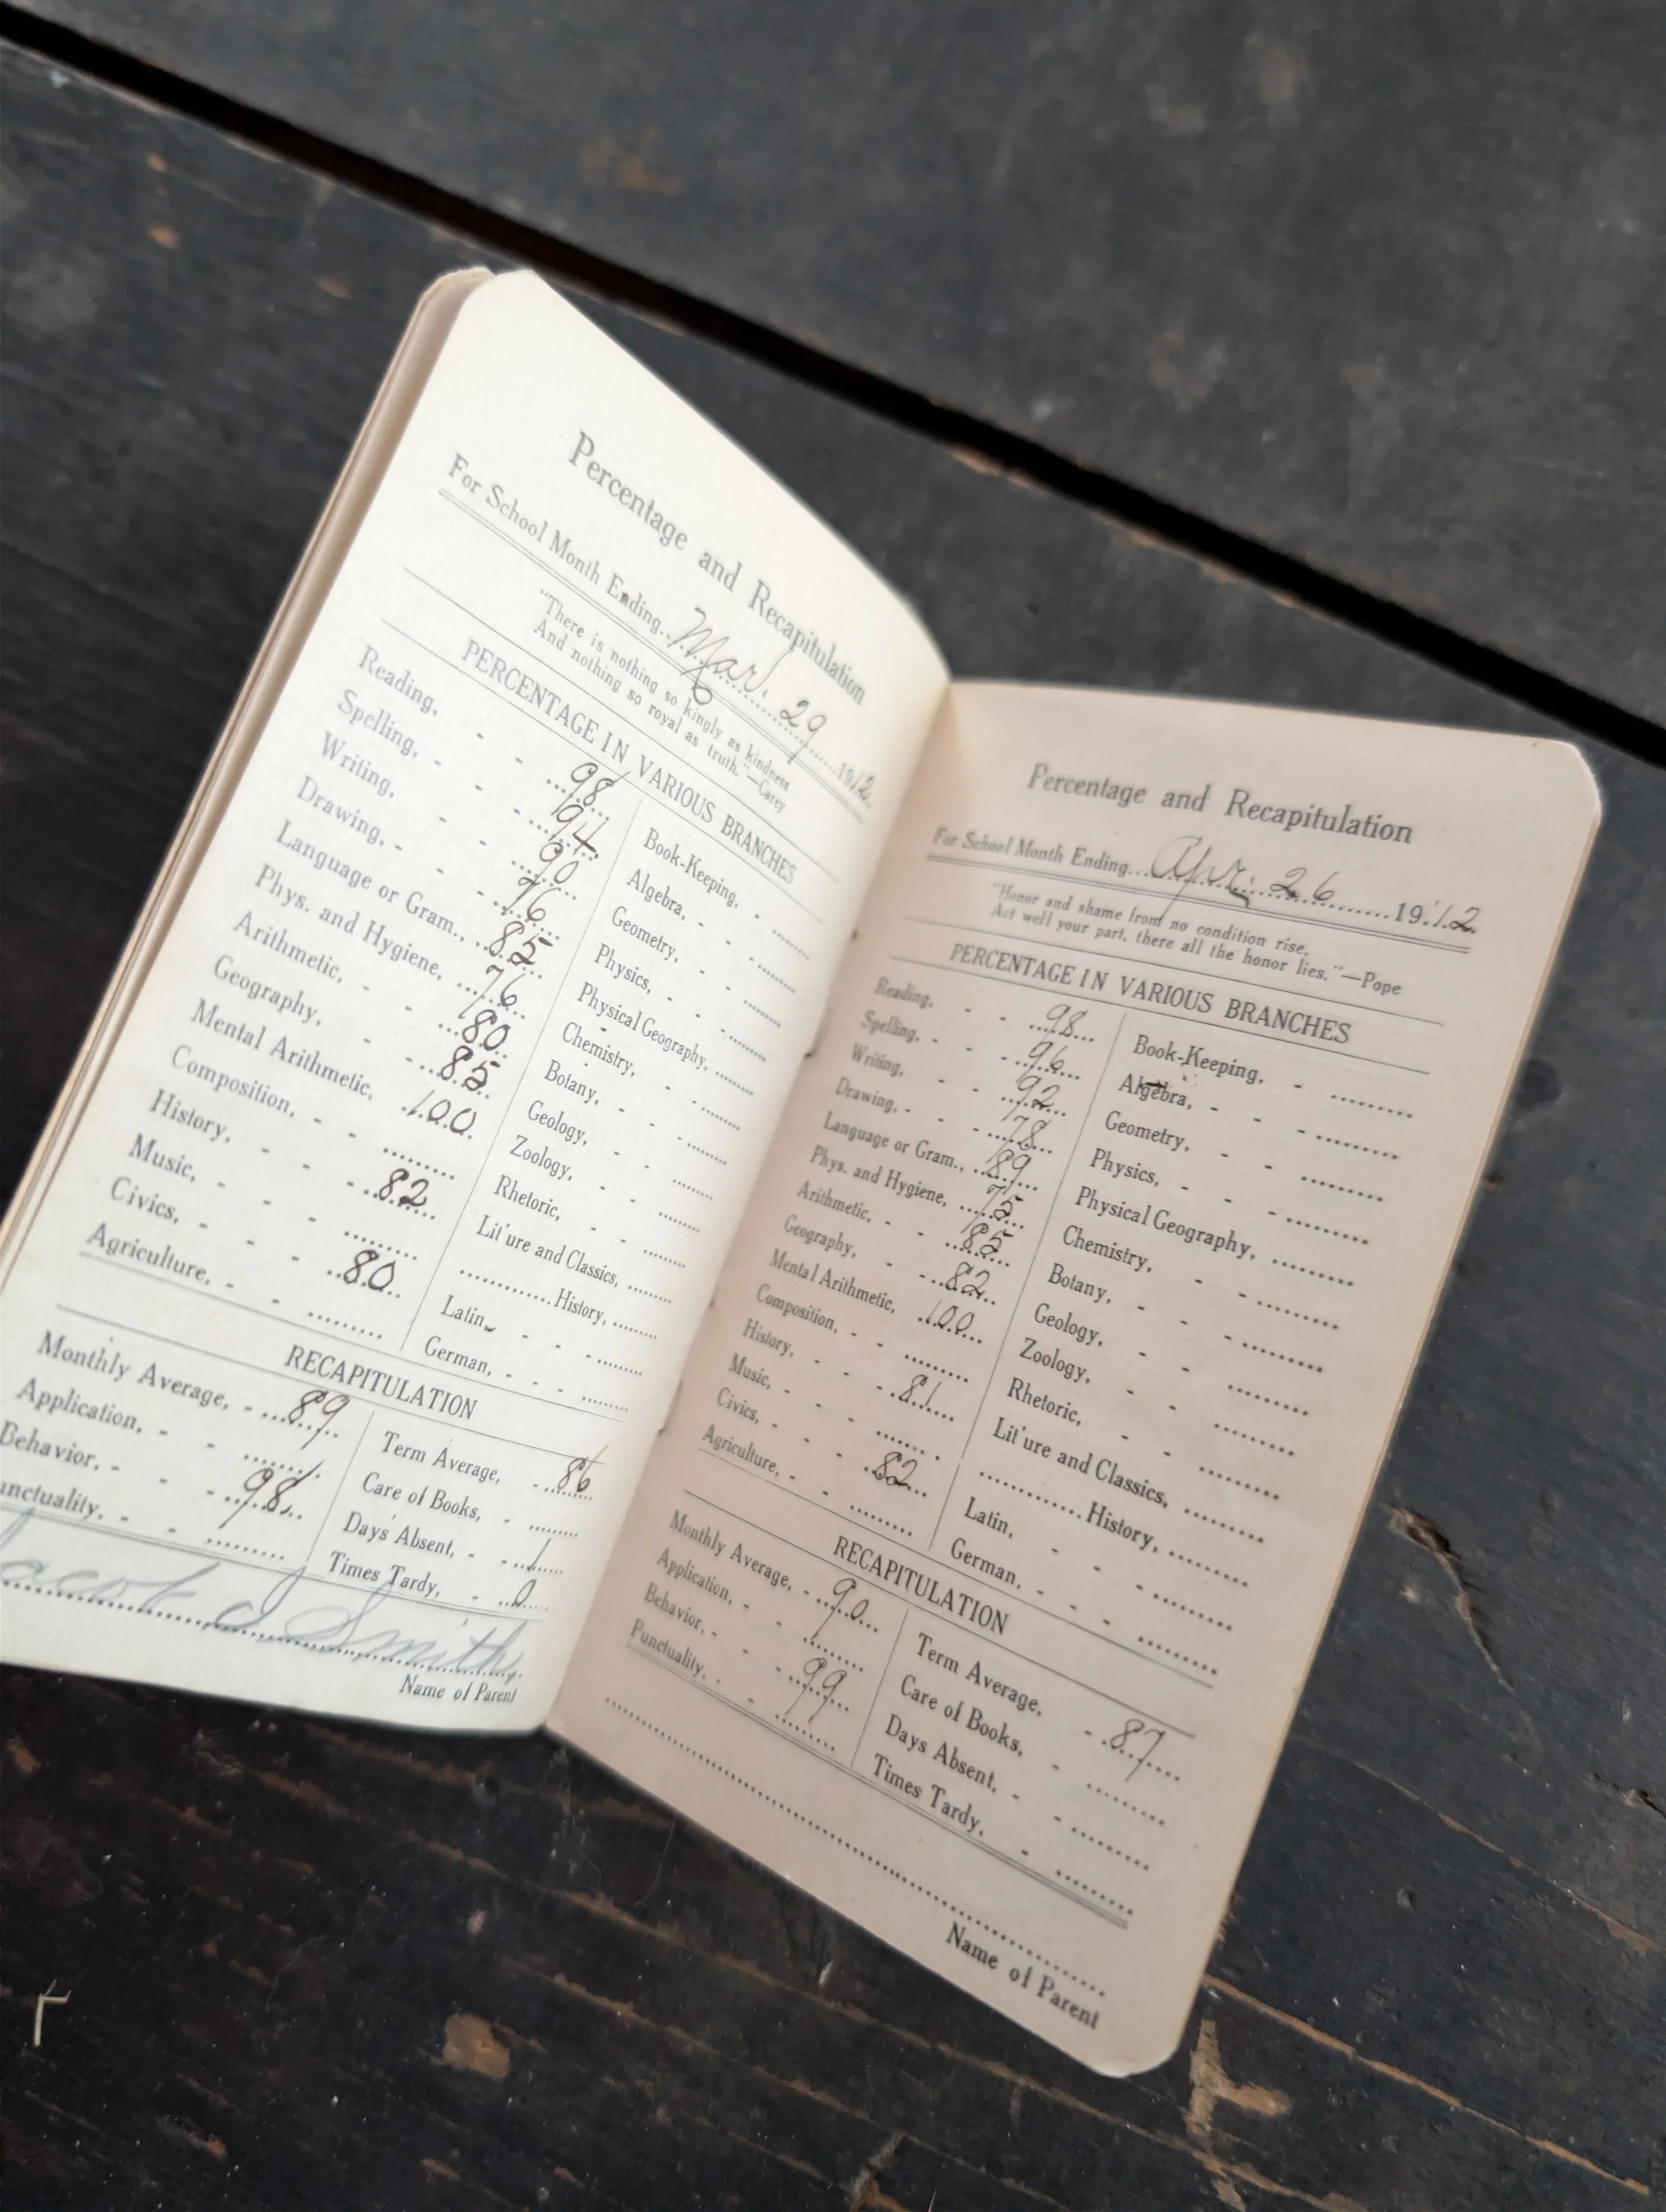 Percentage and Recapitulation
For School Month Ending Mar. 29 1912
"There is nothing so kingly as kindness
And nothing so royal as truth."—Carey
PERCENTAGE IN VARIOUS BRANCHES
Reading, 98
Spelling, 94
Writing, 90
Drawing, 76
Language or Gram., 85
Phys. and Hygiene, 76
Arithmetic, 80
Geography, 85
Mental Arithmetic, 100
Composition,
History, 82
Music,
Civics, 80
Agriculture,
Book-Keeping,
Algebra,
Geometry,
Physics,
Physical Geography,
Chemistry,
Botany,
Geology,
Zoology,
Rhetoric,
Lit'ure and Classics,
History,
Latin,
German,
RECAPITULATION
Monthly Average, 89
Application,
Behavior, 98
unctuality,
Term Average, 86
Care of Books,
Days Absent, 1
Times Tardy, 0
Smith
Name of Parent
Percentage and Recapitulation
For School Month Ending Apr. 26 1912
"Honor and shame from no condition rise,
Act well your part, there all the honor lies."—Pope
PERCENTAGE IN VARIOUS BRANCHES
Reading, 98
Spelling, 96
Writing, 92
Drawing, 78
Language or Gram., 89
Phys. and Hygiene, 75
Arithmetic, 85
Geography, 82
Mental Arithmetic, 100
Composition,
History, 81
Music,
Civics, 82
Agriculture,
Book-Keeping,
Algebra,
Geometry,
Physics,
Physical Geography,
Chemistry,
Botany,
Geology,
Zoology,
Rhetoric,
Lit'ure and Classics,
History,
Latin,
German,
RECAPITULATION
Monthly Average, 90
Application,
Behavior, 99
Punctuality,
Term Average, 87
Care of Books,
Days Absent,
Times Tardy,
Name of Parent